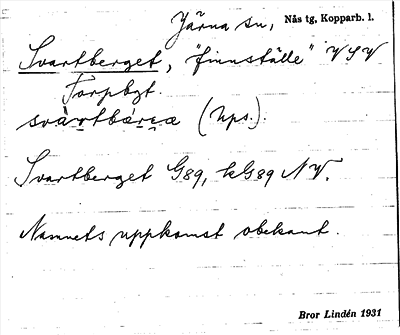 Järna sn, Nås tg, Kopparb. l.
Svartberget, "finnställe" VSV
Torpbgt.
svàrtbǽrɛa (Ups.).
Svartberget G89, kG89 NV.
Namnets uppkomst obekant.
Bror Lindén 1931